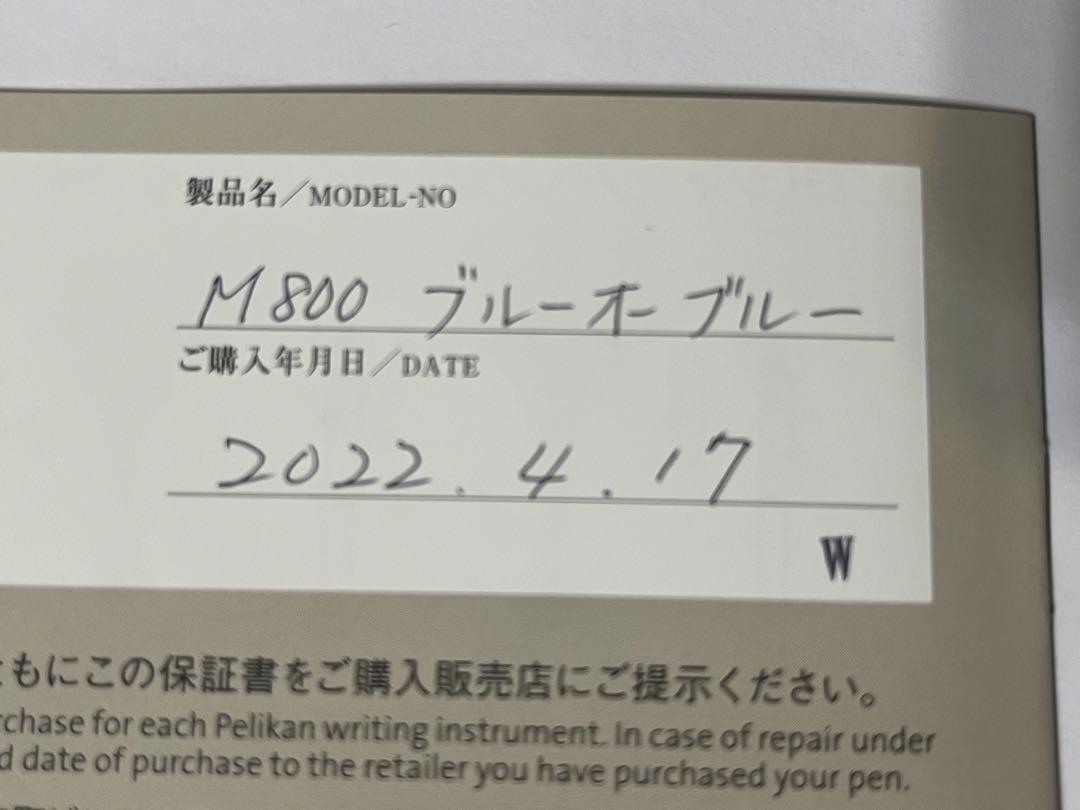 製品名／MODEL-NO
M800 ブルーオーブルー
ご購入年月日／DATE
2022.4.17
W
ともにこの保証書をご購入販売店にご提示ください。
rchase for each Pelikan writing instrument. In case of repair under
d date of purchase to the retailer you have purchased your pen.